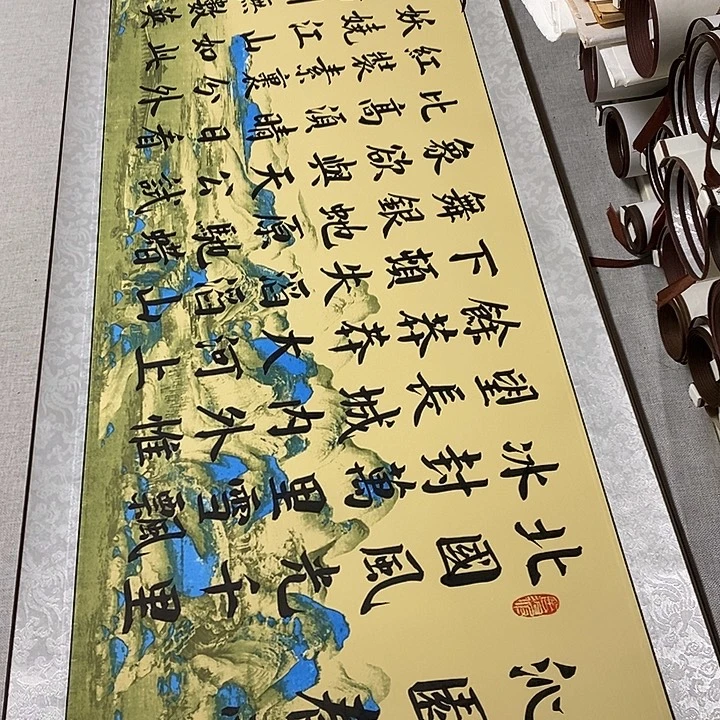 沁園春
北國風光千里
冰封萬里雪飄
望長城内外惟
餘莽莽大河上
下頓失滔滔山
舞銀蛇原馳蜡
象欲與天公試
比高須晴日看
紅裝素裹分外
妖嬈江山如此
無數英